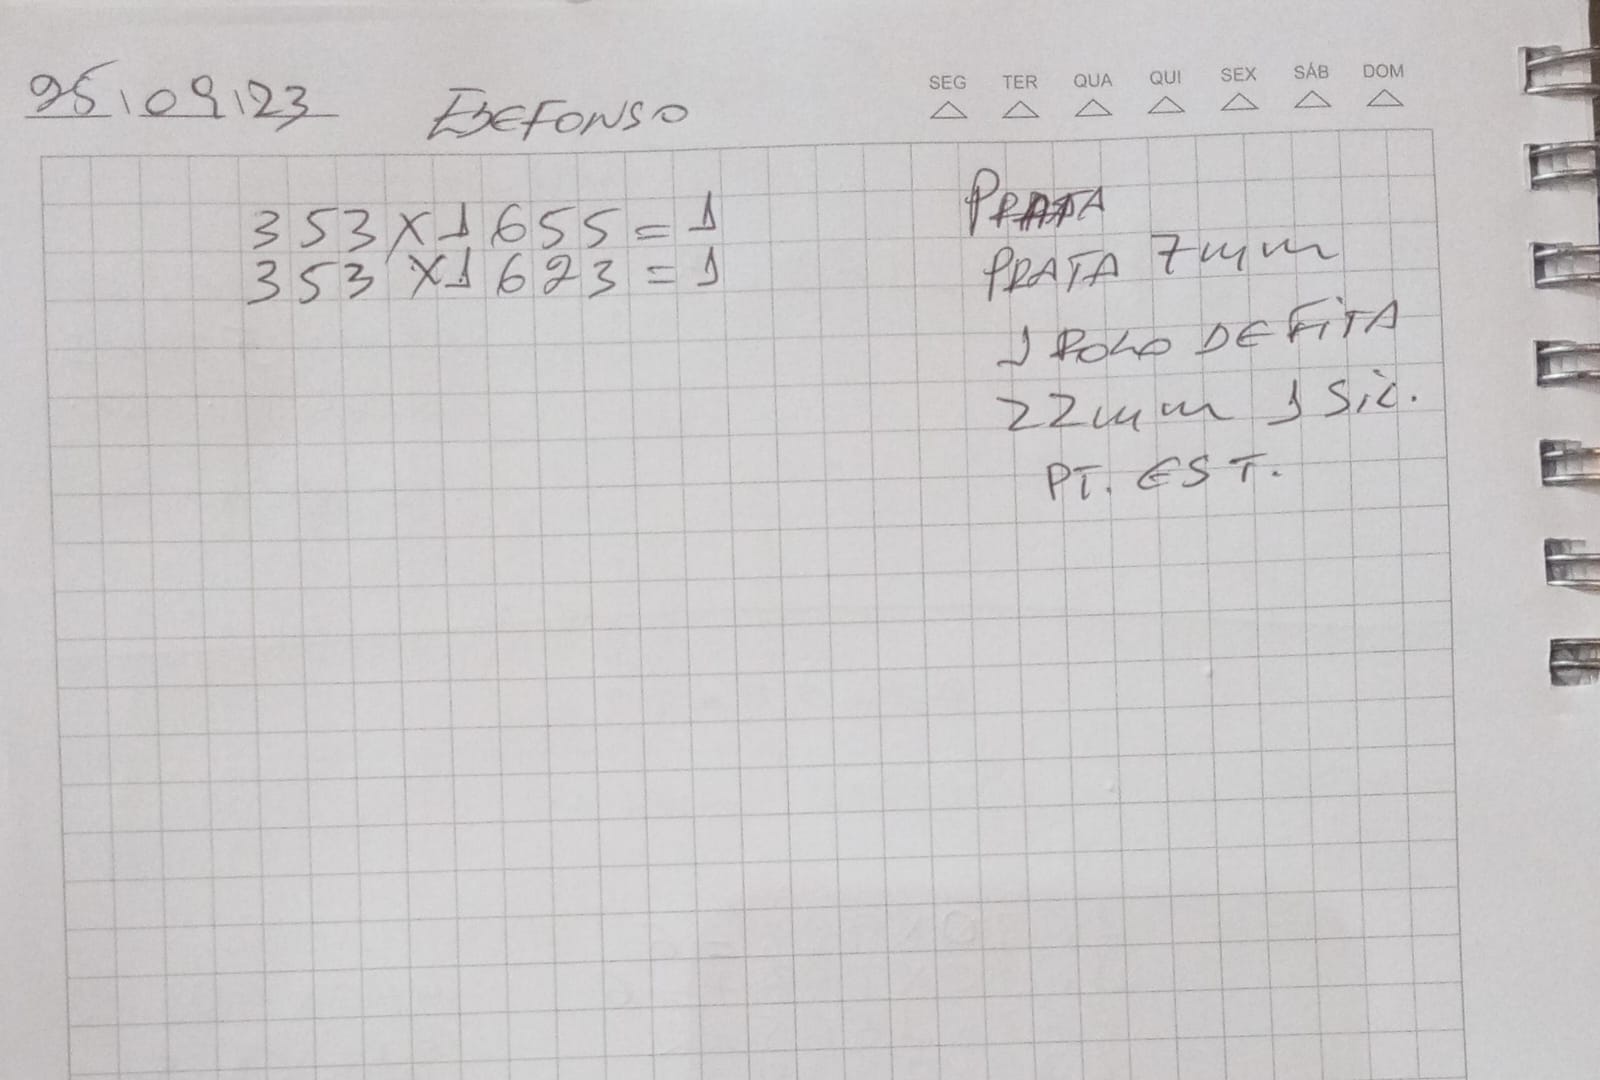 25/09/23
SEG TER QUA QUI SEX SÁB DOM
353x1655=1
PRATA
353x1623=1
PRATA 7mm
1 ROLO DE FITA
22mm 1 Sil.
PT. EST.